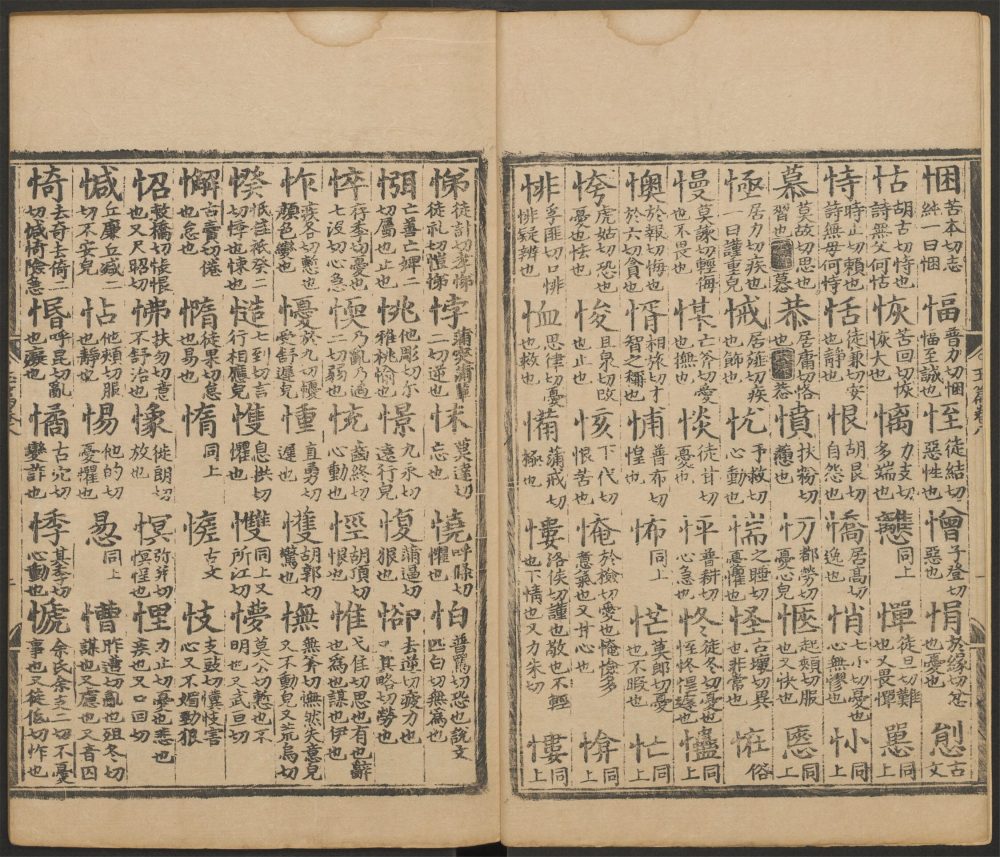 悃苦本切志純一曰悃 愊普力切悃愊至誠也 恎徒結切惡性也 憎子登切惡也 悁於緣切忿也憂也 古文
怙胡古切恃也詩無父何怙 恢苦回切恢恢大也 力支切多端也 同上 憚徒旦切難也又畏憚 同上
恃時止切賴也詩無母何恃 恬徒兼切安也靜也 恨胡艮切自怨也 憍居高切逸也 悄七小切憂也心無憀也 㣺同上
慕莫故切思也習也 慕 恭居庸切恪也 恭 憤扶粉切懣也 忉都勞切憂心皃 愜起頰切服也又快也 㥦同上
悈居力切疾也一曰謹重皃 悈居薤切疾也飾也 忧于救切心動也 惴之睡切憂懼也 怪古壞切異也非常也 恠俗
慢莫諫切輕侮也不畏也 㤱亡斧切愛也撫也 惔徒甘切憂也 怦普耕切心急也 佟徒冬切憂也 同上
懊於報切悔也於六切貪也 㥠相旅切才智之稱也 悑普布切惶也 怖同上 恾莫郎切憂也不暇也 忙同上
㤉虎姑切恐也憂也怯也 悛且泉切改也止也 㤥下代切恨苦也 㤿於檢切愛也 同上
悱孚匪切口悱悱疑辨也 恤思律切憂也救也 㣁蒲戒切極也 慺洛侯切謹也敬也不輕也下情也又力朱切 慺同上
悌徒計切孝悌徒礼切愷悌 悖蒲突蒲輩二切逆也 怽莫達切忘也 憢呼條切懼也 怕普駕切恐也說文匹白切無為也
㥝亡善亡婢二切厲也止也 恌他彫切尔雅恌愉也 憬九永切遠行皃 愎蒲逼切狠也 㕁去逆切疲力也口其略切勞也
悴行季切憂也七沒切心急也 愞乃亂乃過二切弱也 㤝齒終切心動也 悙胡頂切恨也 惟弋佳切思也有也辭也為也謀也伊也
怍疾各切慙也顏色變也 懮於九切懮受舒遲皃 㣫直勇切遲也 㦜胡郭切驚也 憮無斧切憮然失意皃又不動皃又荒烏切
悸祇誰祇癸二切悸也悚也 慥七到切言行相應皃 㦦息拱切懼也 㦼同上又所江切 懜莫公切慙也不明也又武亘切
懈古賣切倦也怠也 憜徒果切怠也易也 惰同上 古文 忮支豉切懻忮害心又不媚勁狠
怊敕橋切悵恨也又尺昭切 怫扶勿切意不舒治也 憃徒朗切放也 慏弥并切慏悜也 悝力止切憂也悲也疾也又口回切
㦑丘廉丘減二切不安皃 怗他頰切服也靜也 惕他的切憂懼也 悐同上 慒昨遭切亂也徂冬切謀也又慮也又音囚
㥓去奇去倚二切㦑㥓險急也 惛呼昆切亂也癡也 憰古穴切變詐也 悸其季切心動也 㥴余氏余支二切不憂事也又徒低切怍也